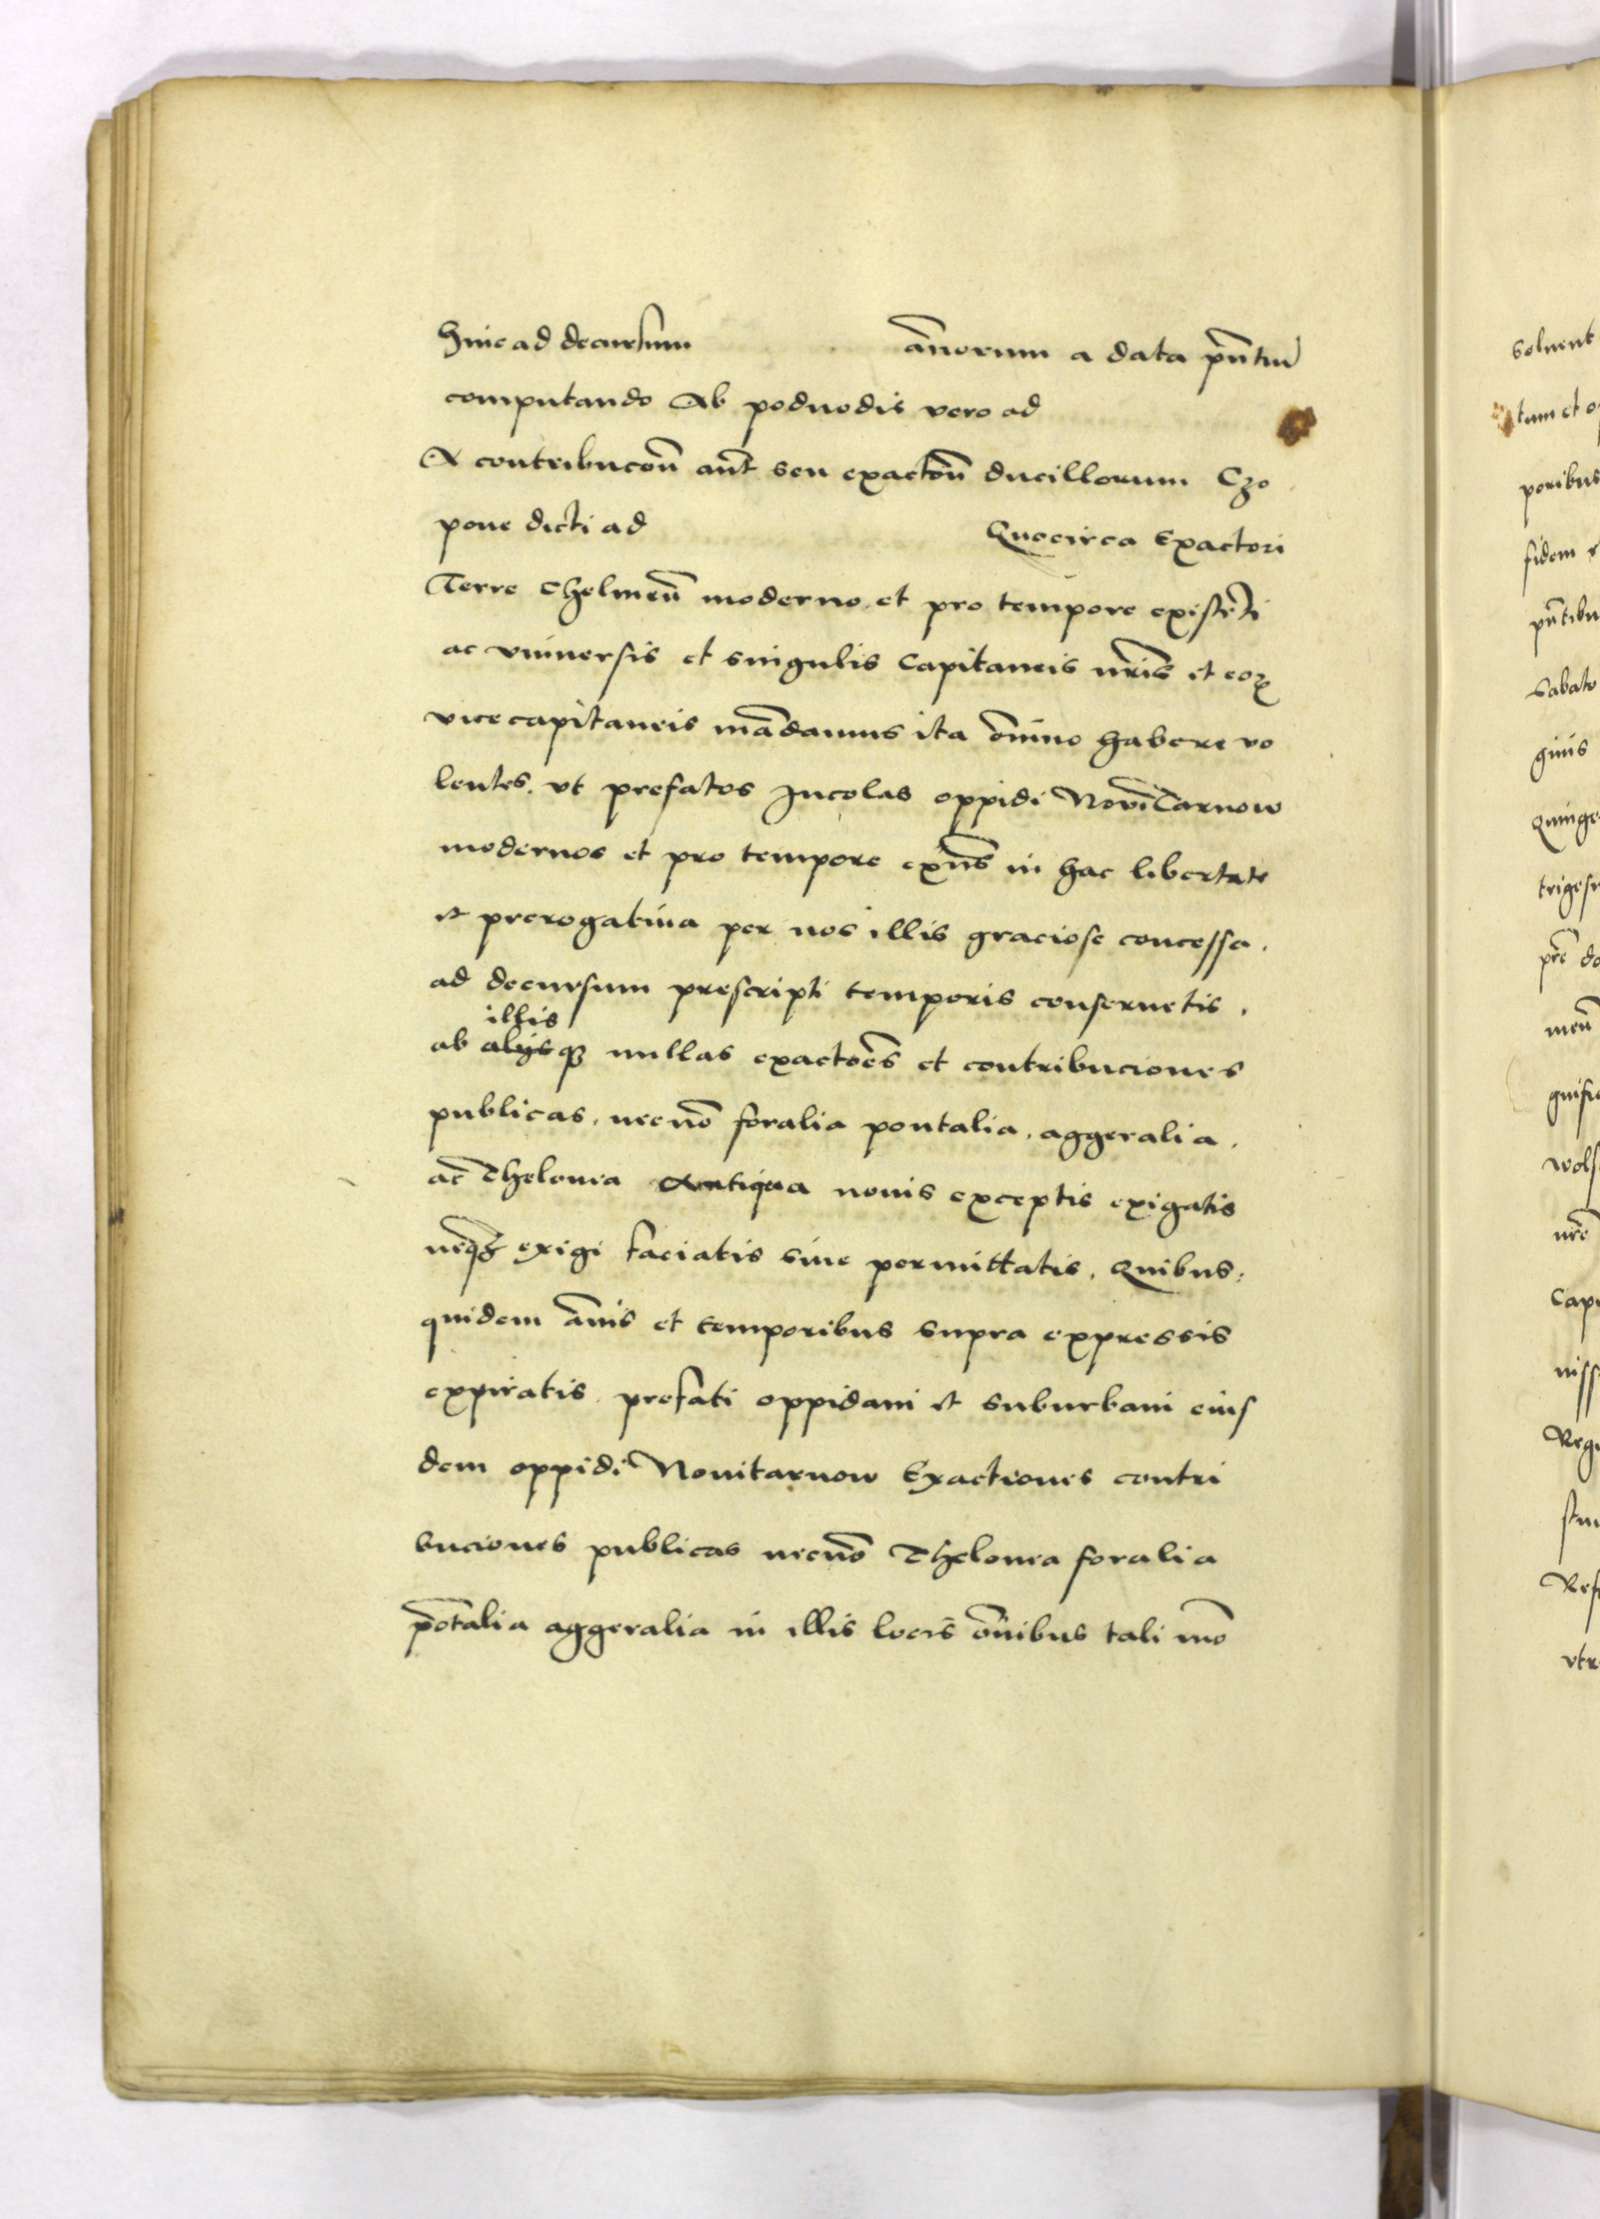 hinc ad decursum ānorum a data pn̄tiū
computando Ab podvodis vero ad
A contribucōn̄ aūt seu exactōn̄ ducillorum Czo
pove dicti ad Quocirca Exactori
Terre Chelmeñ moderno et pro tempore existēti
ac vniuersis et singulis Capitaneis nr̄is et eoꝝ
vicecapitaneis mādamus ita ōnino habere vo
lentes. vt prefatos Incolas oppidi NoviTarnow
modernos et pro tempore exn̄s in hac libertate
et prerogatiua per nos illis graciose concessa.
ad decursum prescripti temporis conseruetis.
illis
ab alijsqꝫ nullas exactoēs et contribuciones
publicas. necnō foralia pontalia. aggeralia.
ac Thelonea Antiqua nouis exceptis exigatis
neqꝫ exigi faciatis siue permittatis. Quibus
quidem ānis et temporibus supra expressis
expiratis prefati oppidani et suburbani eius
dem oppidi Novitarnow Exactiones contri
buciones publicas necnō Thelonea foralia
pōtalia aggeralia in illis locis ōnibus tali mō
solvent
tum et
poribus
fidem
pn̄tibu
Sabato
Quinge
meñ
Capi